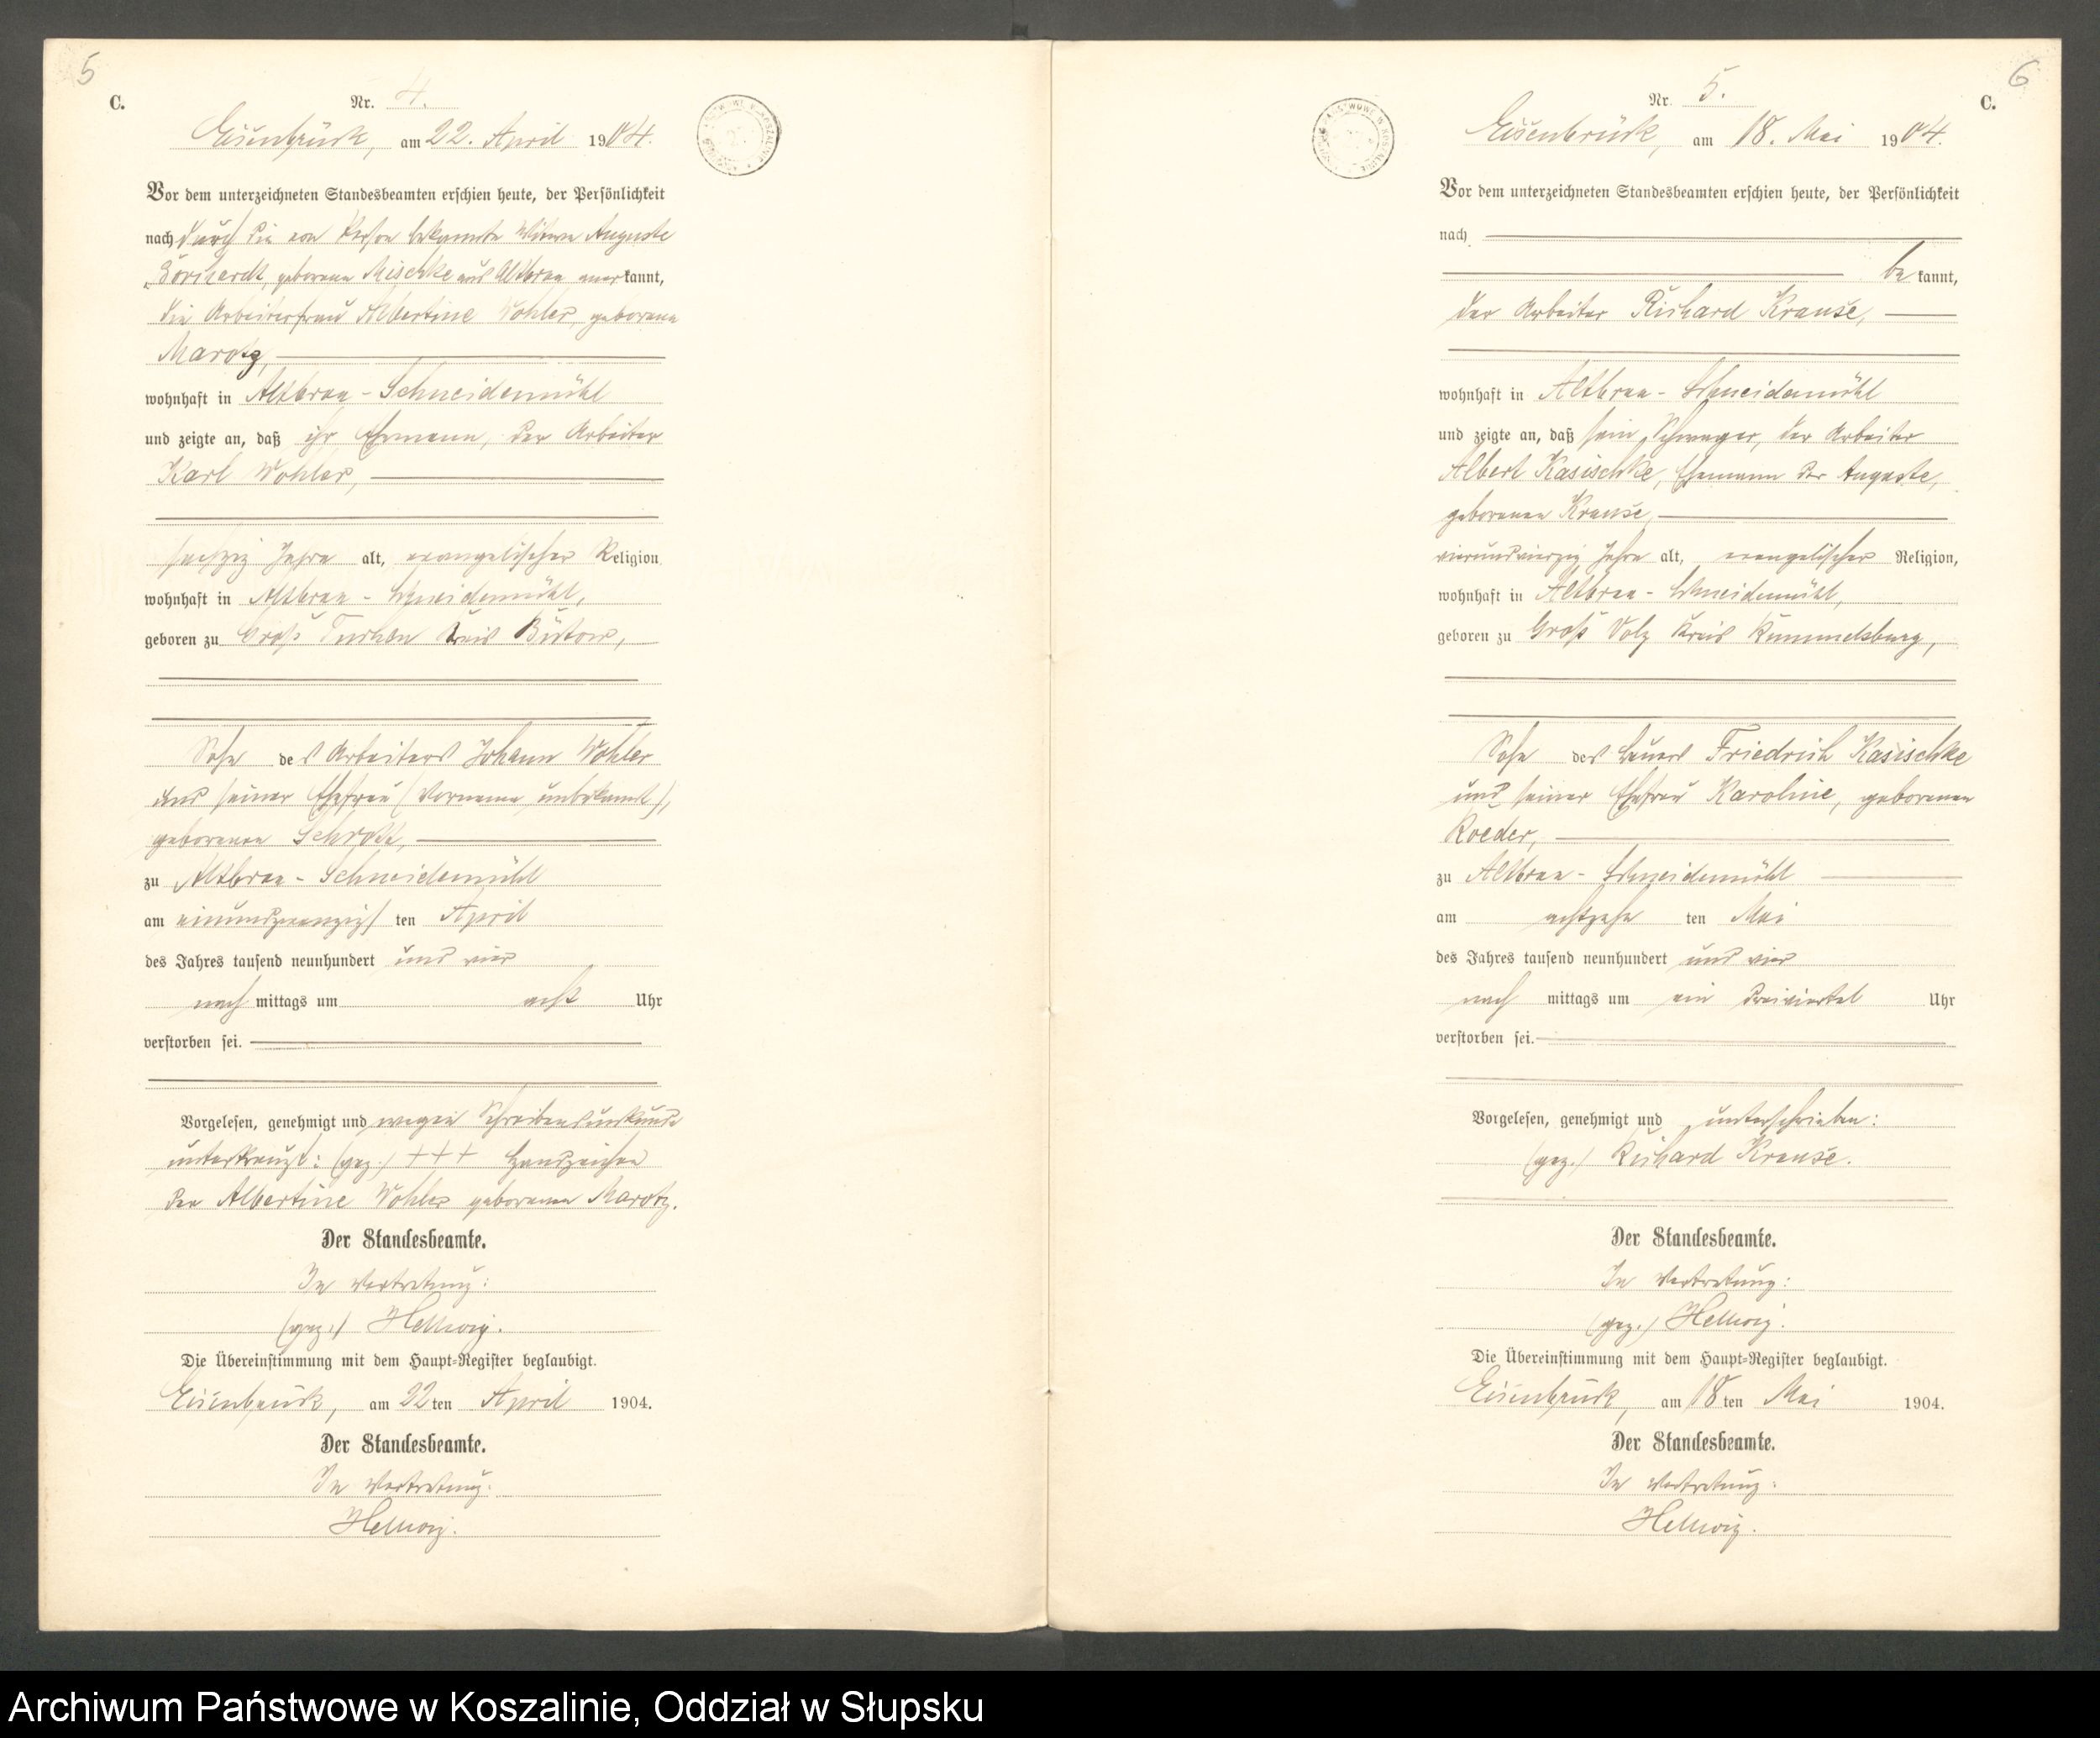 5
C.
Nr. 4.
Eisenbrück, am 22. April 1904.
Vor dem unterzeichneten Standesbeamten erschien heute, der Persönlichkeit
nach durch die von Person bekannte Witwe Auguste
Borchardt, geborene Mischke aus Altbraa anerkannt,
die Arbeiterfrau Albertine Wohler, geborene
Marotz,
wohnhaft in Altbraa-Schneidemühl
und zeigte an, daß ihr Ehemann, der Arbeiter
Karl Wohler,
sechzig Jahre alt, evangelischer Religion
wohnhaft in Altbraa-Schneidemühl,
geboren zu Groß Tuchen Kreis Bütow,
Sohn des Arbeiters Johann Wohler
und seiner Ehefrau (Vorname unbekannt),
geborenen
zu Altbraa-Schneidemühl
am einundzwanzigsten April
des Jahres tausend neunhundert und vier
nachmittags um acht Uhr
verstorben sei.
Vorgelesen, genehmigt und wegen Schreibensunkunde
unterkreuzt: (gez.) +++ Handzeichen
der Albertine Wohler geborenen Marotz.
Der Standesbeamte.
In Vertretung:
(gez.) Hellwig.
Die Übereinstimmung mit dem Haupt-Register beglaubigt.
Eisenbrück, am 22ten April 1904.
Der Standesbeamte.
In Vertretung:
Hellwig.
6
C.
Nr. 5.
Eisenbrück, am 18. Mai 1904.
Vor dem unterzeichneten Standesbeamten erschien heute, der Persönlichkeit
nach
bekannt,
der Arbeiter Richard Krause,
wohnhaft in Altbraa-Schneidemühl
und zeigte an, daß sein Schwager, der Arbeiter
Albert Kasischke, Ehemann der Auguste,
geborenen Krause,
vierundvierzig Jahre alt, evangelischer Religion,
wohnhaft in Altbraa-Schneidemühl,
geboren zu Groß Volz Kreis Rummelsburg,
Sohn des Bauers Friedrich Kasischke
und seiner Ehefrau Karoline, geborenen
Roeder,
zu Altbraa-Schneidemühl
am achtzehnten Mai
des Jahres tausend neunhundert und vier
nachmittags um ein dreiviertel Uhr
verstorben sei.
Vorgelesen, genehmigt und unterschrieben:
(gez.) Richard Krause.
Der Standesbeamte.
In Vertretung:
(gez.) Hellwig.
Die Übereinstimmung mit dem Haupt-Register beglaubigt.
Eisenbrück, am 18ten Mai 1904.
Der Standesbeamte.
In Vertretung:
Hellwig.
Archiwum Państwowe w Koszalinie, Oddział w Słupsku